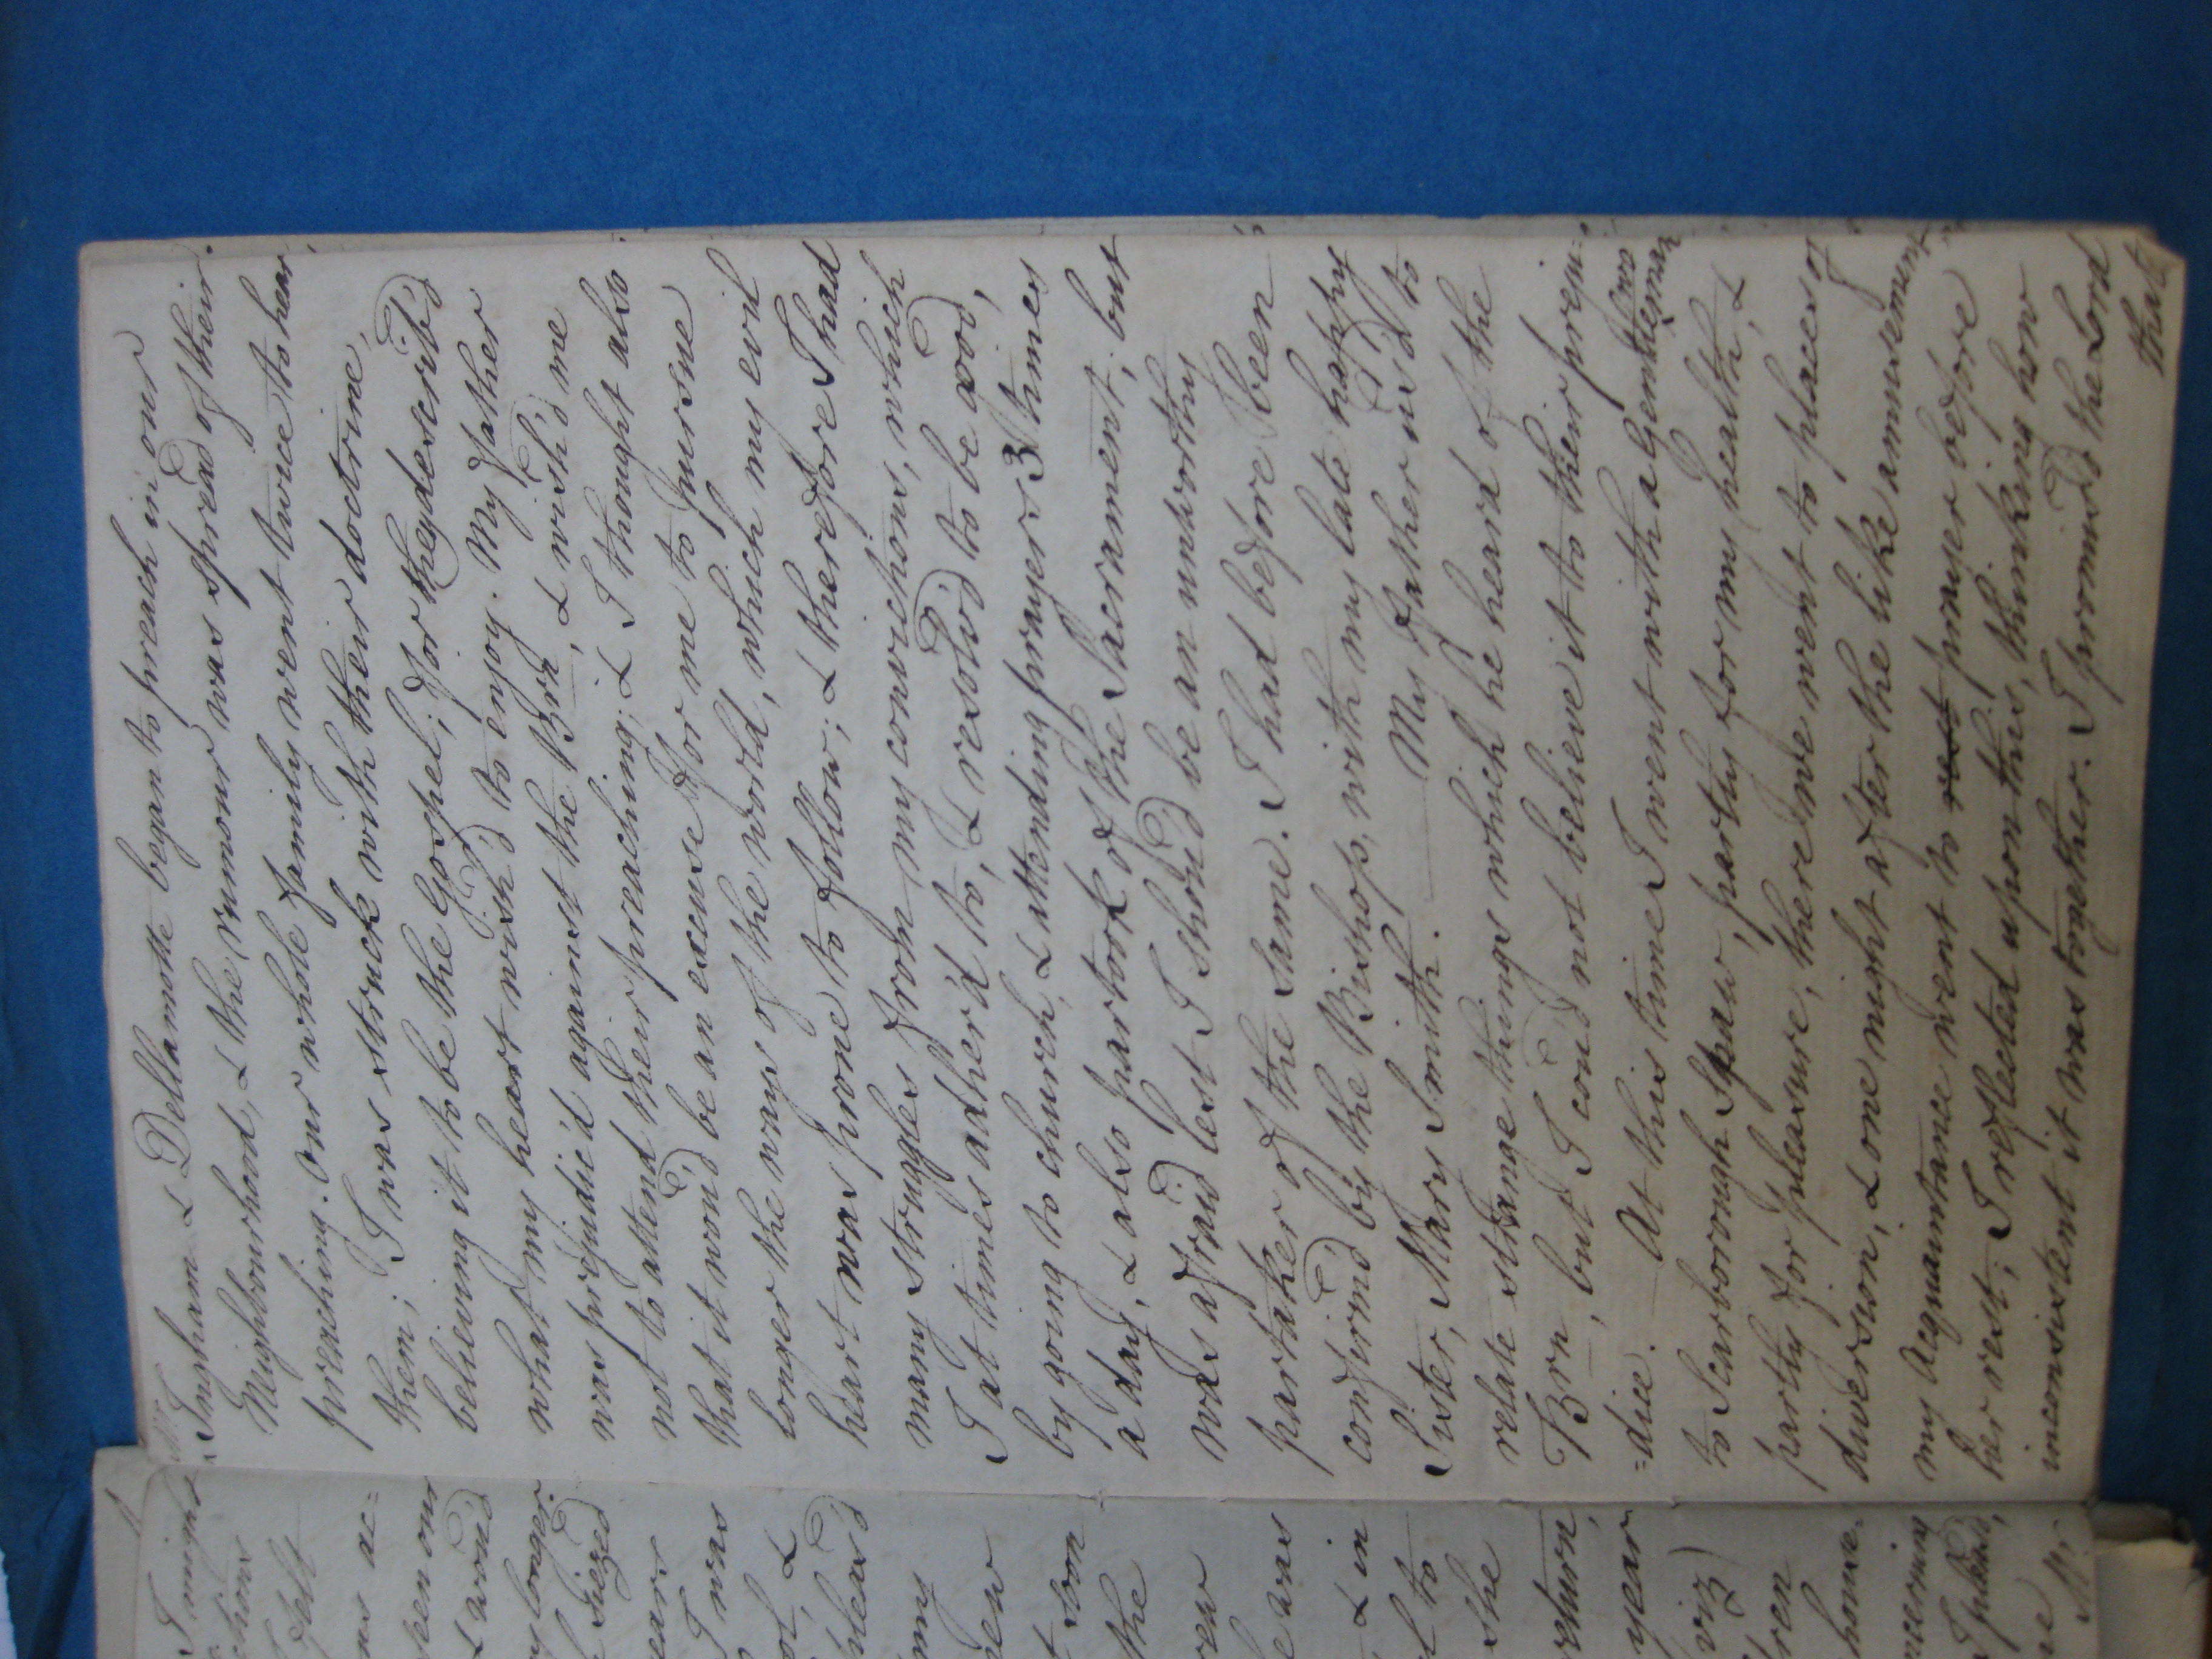 I might
ctions
I felt
ns ac=
seen our
& wou'd
ny longer.
siezed
ears
I was
ol, &
pleas'd
my
new
t soon
the
rew
e was
, & in
l to
she
return,
year
viz)
ren
house=
ncerning
I pleas'd,
ne
Mr.
Mr.
Ingham & Dellamotte began to preach in our
Neighbourhood, & the rumour was spread of their
preaching. Our whole family went twice to hear
them; I was struck with their doctrine,
believing it to be the Gospel; for they describ'd
what my heart wish'd to enjoy. My father
was prejudic'd against the Brn, & wish'd me
not to attend their preaching; & I thought also
that it wou'd be an excuse for me to pursue
longer the ways of the world, which my evil
heart was prone to follow; & therefore I had
many struggles from my convictions, which
I at times adher'd to, & resolv'd to be good,
by going to church, & attending prayers 3 times
a day, & also partook of the Sacrament; but
was afraid lest I shou'd be an unworthy
partaker of the same. I had before been
confirm'd by the Bishop, with my late happy
Sister, Mary Smith. — My father us'd to
relate strange things which he heard of the
Brn, but I cou'd not believe it to their preju=
=dice. — At this time I went with a Gentlewoman
to Scarborough Spaw, partly for my health, &
partly for pleasure, there we went to places of
diversion, & one night after the like amusement,
my Acquaintance went to rest prayer before
her rest; I reflected upon this, thinking how
inconsistent it was together. I promis'd the Lord
that